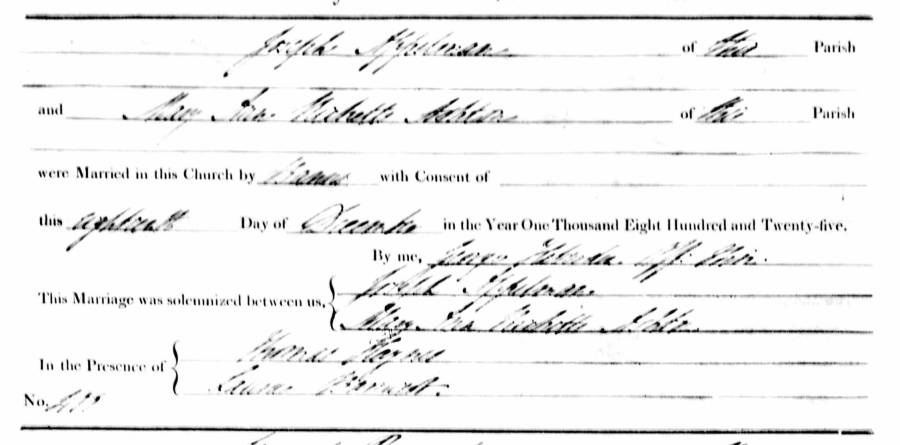 Joseph Appelman of this Parish
and Mary Ann Ashton of this Parish
were Married in this Church by Banns with Consent of
this eighteenth Day of December in the Year One Thousand Eight Hundred and Twenty-five.
By me, George
This Marriage was solemnized between us, Joseph Appelman
Mary Ann
In the Presence of Thomas
No.